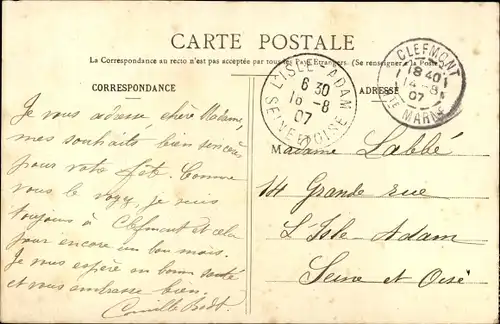 CARTE POSTALE
La Correspondance au recto n'est pas acceptée par tous les Pays Etrangers. (Se renseigner à la Poste
CORRESPONDANCE
ADRESSE
L'ISLE-ADAM
6 30
16 -8
07
SEINE ET OISE
CLEFMONT
18 40
14 -8
07
HTE MARNE
Je vous adresse, chère Madame,
mes souhaits bien sincères
pour votre fête. Comme
vous le voyez, je suis
toujours à Clefmont et cela
pour encore un bon mois.
Je vous espère en bonne santé
et vous embrasse bien.
Camille
Madame Labbé
14 Grande rue
L'Isle-Adam
Seine et Oise